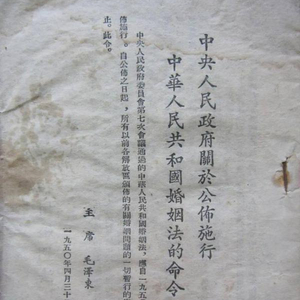 中央人民政府關於公佈施行
中華人民共和國婚姻法的命令
中央人民政府委員會第七次會議通過的中華人民共和國婚姻法，應自一九五
佈施行。自公佈之日起，所有以前各解放區頒佈的有關婚姻問題的一切暫行的
止。此令。
主席 毛澤東
一九五〇年四月三十